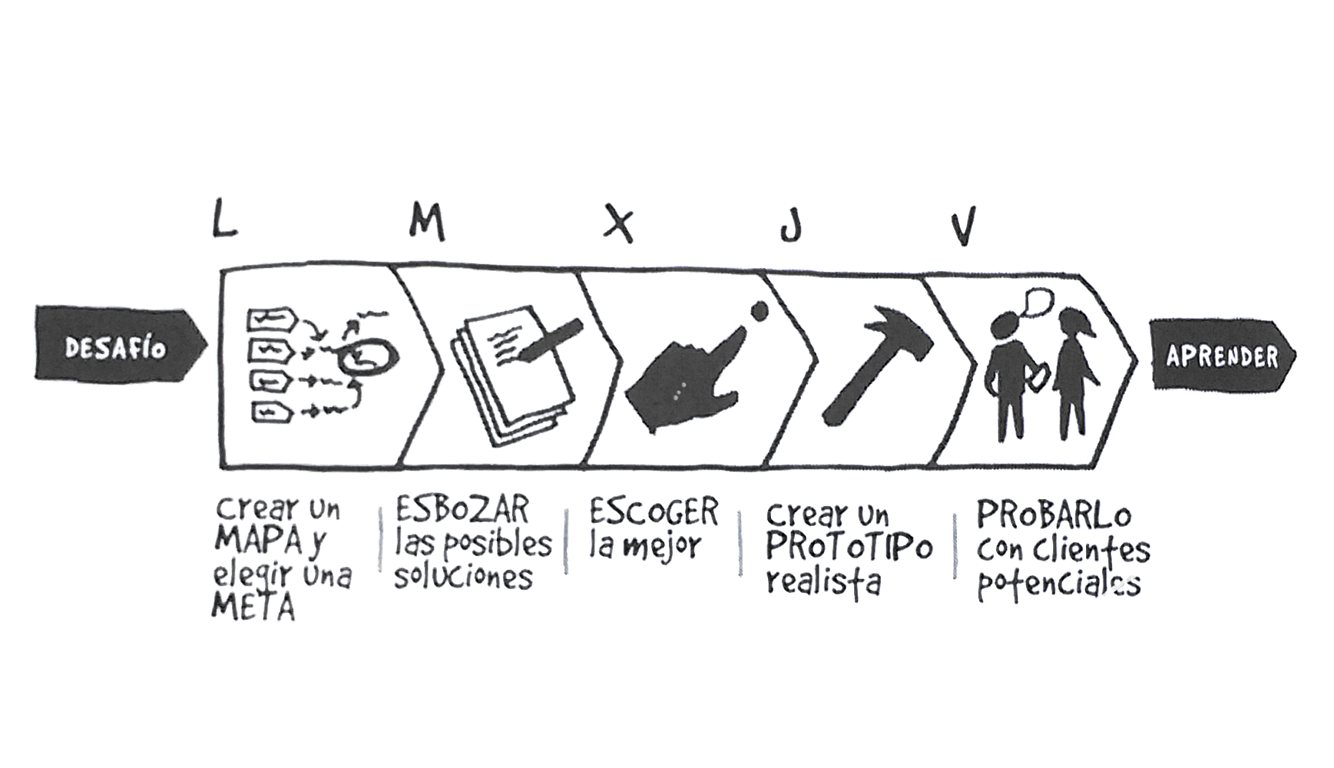 L
M
X
J
V
DESAFÍO
APRENDER
Crear un
MAPA y
elegir una
META
ESBOZAR
las posibles
soluciones
ESCOGER
la mejor
Crear un
PROTOTIPO
realista
PROBARLO
con clientes
potenciales